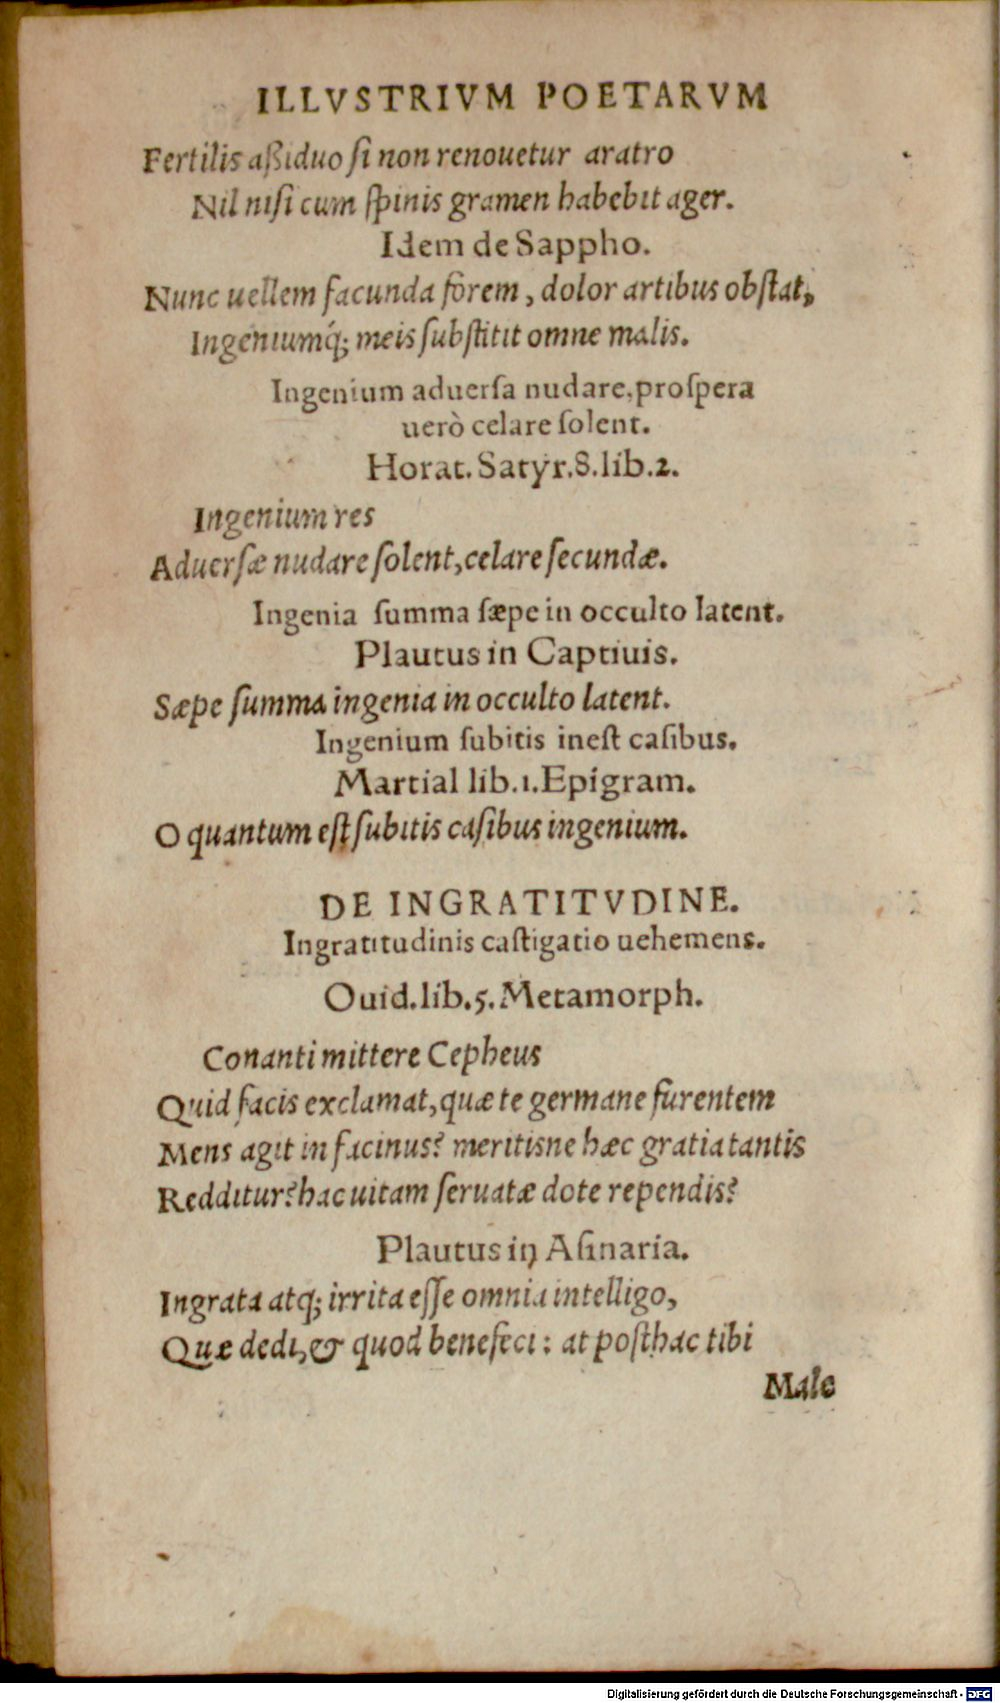 ILLVSTRIVM POETARVM
Fertilis aßiduo ſi non renouetur aratro
Nil niſi cum ſpinis gramen habebit ager.
Idem de Sappho.
Nunc uellem facunda forem, dolor artibus obſtat,
Ingeniumq́; meis ſubſtitit omne malis.
Ingenium aduerſa nudare, proſpera
uerò celare ſolent.
Horat. Satyr. 8. lib. 2.
Ingenium res
Aduerſæ nudare ſolent, celare ſecundæ.
Ingenia ſumma ſæpe in occulto latent.
Plautus in Captiuis.
Sæpe ſumma ingenia in occulto latent.
Ingenium ſubitis ineſt caſibus.
Martial lib. 1. Epigram.
O quantum eſt ſubitis caſibus ingenium.
DE INGRATITVDINE.
Ingratitudinis caſtigatio uehemens.
Ouid. lib. 5. Metamorph.
Conanti mittere Cepheus
Quid facis exclamat, quæ te germane furentem
Mens agit in facinus? meritisne hæc gratia tantis
Redditur? hac uitam ſeruatæ dote rependis?
Plautus in Aſinaria.
Ingrata atq; irrita eſſe omnia intelligo,
Quæ dedi, & quod benefeci: at poſthac tibi
Male
Digitalisierung gefördert durch die Deutsche Forschungsgemeinschaft - DFG